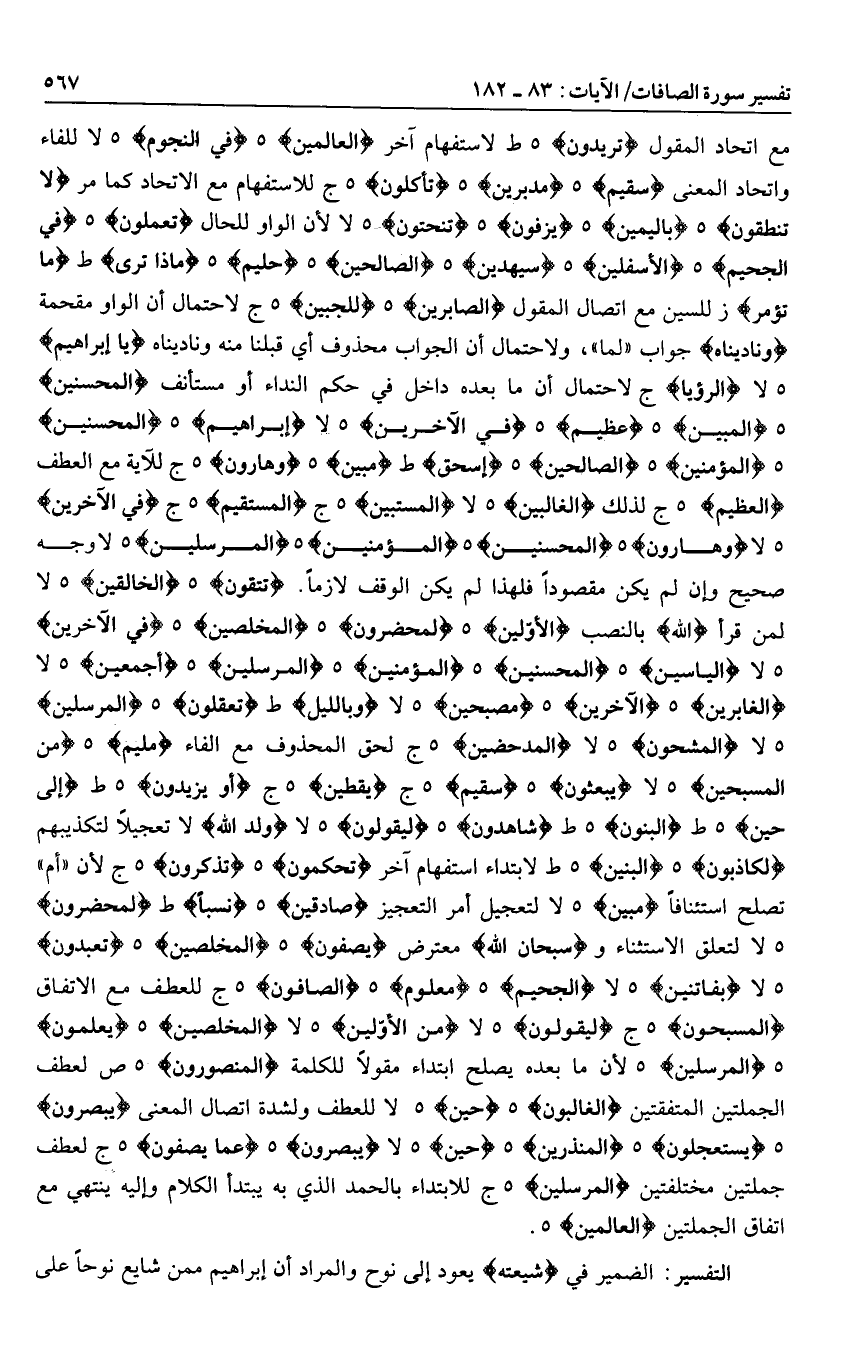 تفسير سورة الصافات/ الآيات: ٨٣ - ١٨٢ ٥٦٧
مع اتحاد المقول ﴿تريدون﴾ ٥ ط لاستفهام آخر ﴿العالمين﴾ ٥ ﴿في النجوم﴾ ٥ لا للفاء
واتحاد المعنى ﴿سقيم﴾ ٥ ﴿مدبرين﴾ ٥ ﴿تأكلون﴾ ٥ ج للاستفهام مع الاتحاد كما مر ﴿لا
تنطقون﴾ ٥ ﴿باليمين﴾ ٥ ﴿يزفون﴾ ٥ ﴿تنحتون﴾ ٥ لا لأن الواو للحال ﴿تعملون﴾ ٥ ﴿في
الجحيم﴾ ٥ ﴿الأسفلين﴾ ٥ ﴿سيهدين﴾ ٥ ﴿الصالحين﴾ ٥ ﴿حليم﴾ ٥ ﴿ماذا ترى﴾ ط ﴿ما
تؤمر﴾ ز للسين مع اتصال المقول ﴿الصابرين﴾ ٥ ﴿للجبين﴾ ٥ ج لاحتمال أن الواو مقحمة
﴿وناديناه﴾ جواب «لما»، ولاحتمال أن الجواب محذوف أي قبلنا منه وناديناه ﴿يا إبراهيم﴾
٥ لا ﴿الرؤيا﴾ ج لاحتمال أن ما بعده داخل في حكم النداء أو مستأنف ﴿المحسنين﴾
٥ ﴿المبين﴾ ٥ ﴿عظيم﴾ ٥ ﴿في الآخرين﴾ ٥ لا ﴿إبراهيم﴾ ٥ ﴿المحسنين﴾
٥ ﴿المؤمنين﴾ ٥ ﴿الصالحين﴾ ٥ ﴿إسحق﴾ ط ﴿مبين﴾ ٥ ﴿وهارون﴾ ٥ ج للآية مع العطف
﴿العظيم﴾ ٥ ج لذلك ﴿الغالبين﴾ ٥ لا ﴿المستبين﴾ ٥ ج ﴿المستقيم﴾ ٥ ج ﴿في الآخرين﴾
٥ لا ﴿وهارون﴾ ٥ ﴿المحسنين﴾ ٥ ﴿المؤمنين﴾ ٥ ﴿المرسلين﴾ ٥ لا وجه
صحيح وإن لم يكن مقصوداً فلهذا لم يكن الوقف لازماً. ﴿تتقون﴾ ٥ ﴿الخالقين﴾ ٥ لا
لمن قرأ ﴿الله﴾ بالنصب ﴿الأوّلين﴾ ٥ ﴿لمحضرون﴾ ٥ ﴿المخلصين﴾ ٥ ﴿في الآخرين﴾
٥ لا ﴿الياسين﴾ ٥ ﴿المحسنين﴾ ٥ ﴿المؤمنين﴾ ٥ ﴿المرسلين﴾ ٥ ﴿أجمعين﴾ ٥ لا
﴿الغابرين﴾ ٥ ﴿الآخرين﴾ ٥ ﴿مصبحين﴾ ٥ لا ﴿وبالليل﴾ ط ﴿تعقلون﴾ ٥ ﴿المرسلين﴾
٥ لا ﴿المشحون﴾ ٥ لا ﴿المدحضين﴾ ٥ ج لحق المحذوف مع الفاء ﴿مليم﴾ ٥ ﴿من
المسبحين﴾ ٥ لا ﴿يبعثون﴾ ٥ ﴿سقيم﴾ ٥ ج ﴿يقطين﴾ ٥ ج ﴿أو يزيدون﴾ ٥ ط ﴿إلى
حين﴾ ٥ ط ﴿البنون﴾ ٥ ط ﴿شاهدون﴾ ٥ ﴿ليقولون﴾ ٥ لا ﴿ولد الله﴾ لا تعجيلاً لتكذيبهم
﴿لكاذبون﴾ ٥ ﴿البنين﴾ ٥ ط لابتداء استفهام آخر ﴿تحكمون﴾ ٥ ﴿تذكرون﴾ ٥ ج لأن «أم»
تصلح استئنافاً ﴿مبين﴾ ٥ لا لتعجيل أمر التعجيز ﴿صادقين﴾ ٥ ﴿نسباً﴾ ط ﴿لمحضرون﴾
٥ لا لتعلق الاستثناء و ﴿سبحان الله﴾ معترض ﴿يصفون﴾ ٥ ﴿المخلصين﴾ ٥ ﴿تعبدون﴾
٥ لا ﴿بفاتنين﴾ ٥ لا ﴿الجحيم﴾ ٥ ﴿معلوم﴾ ٥ ﴿الصافون﴾ ٥ ج للعطف مع الاتفاق
﴿المسبحون﴾ ٥ ج ﴿ليقولون﴾ ٥ لا ﴿من الأوّلين﴾ ٥ لا ﴿المخلصين﴾ ٥ ﴿يعلمون﴾
٥ ﴿المرسلين﴾ ٥ لأن ما بعده يصلح ابتداء مقولاً للكلمة ﴿المنصورون﴾ ٥ ص لعطف
الجملتين المتفقتين ﴿الغالبون﴾ ٥ ﴿حين﴾ ٥ لا للعطف ولشدة اتصال المعنى ﴿يبصرون﴾
٥ ﴿يستعجلون﴾ ٥ ﴿المنذرين﴾ ٥ ﴿حين﴾ ٥ لا ﴿يبصرون﴾ ٥ ﴿عما يصفون﴾ ٥ ج لعطف
جملتين مختلفتين ﴿المرسلين﴾ ٥ ج للابتداء بالحمد الذي به يبتدأ الكلام وإليه ينتهي مع
اتفاق الجملتين ﴿العالمين﴾ ٥ .
التفسير: الضمير في ﴿شيعته﴾ يعود إلى نوح والمراد أن إبراهيم ممن شايع نوحاً على